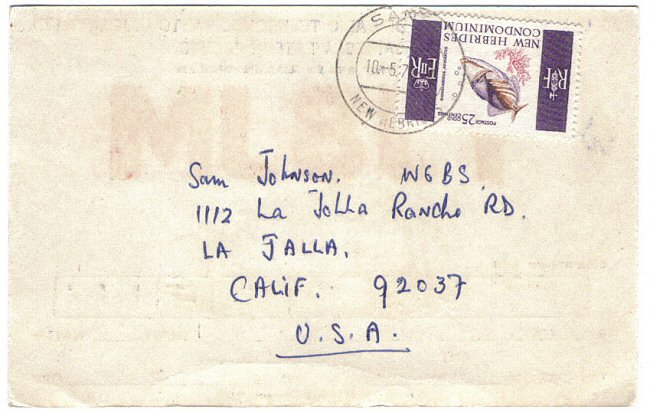 SAN
10.-5.7
NEW HEBRI
NEW HEBRIDES
CONDOMINIUM
E II R
RF
POSTAGE
25 GOLD CENTIMES
Sam Johnson. W6BS
1112 La Jolla Rancho RD.
LA JALLA,
CALIF. 92037
U.S.A.